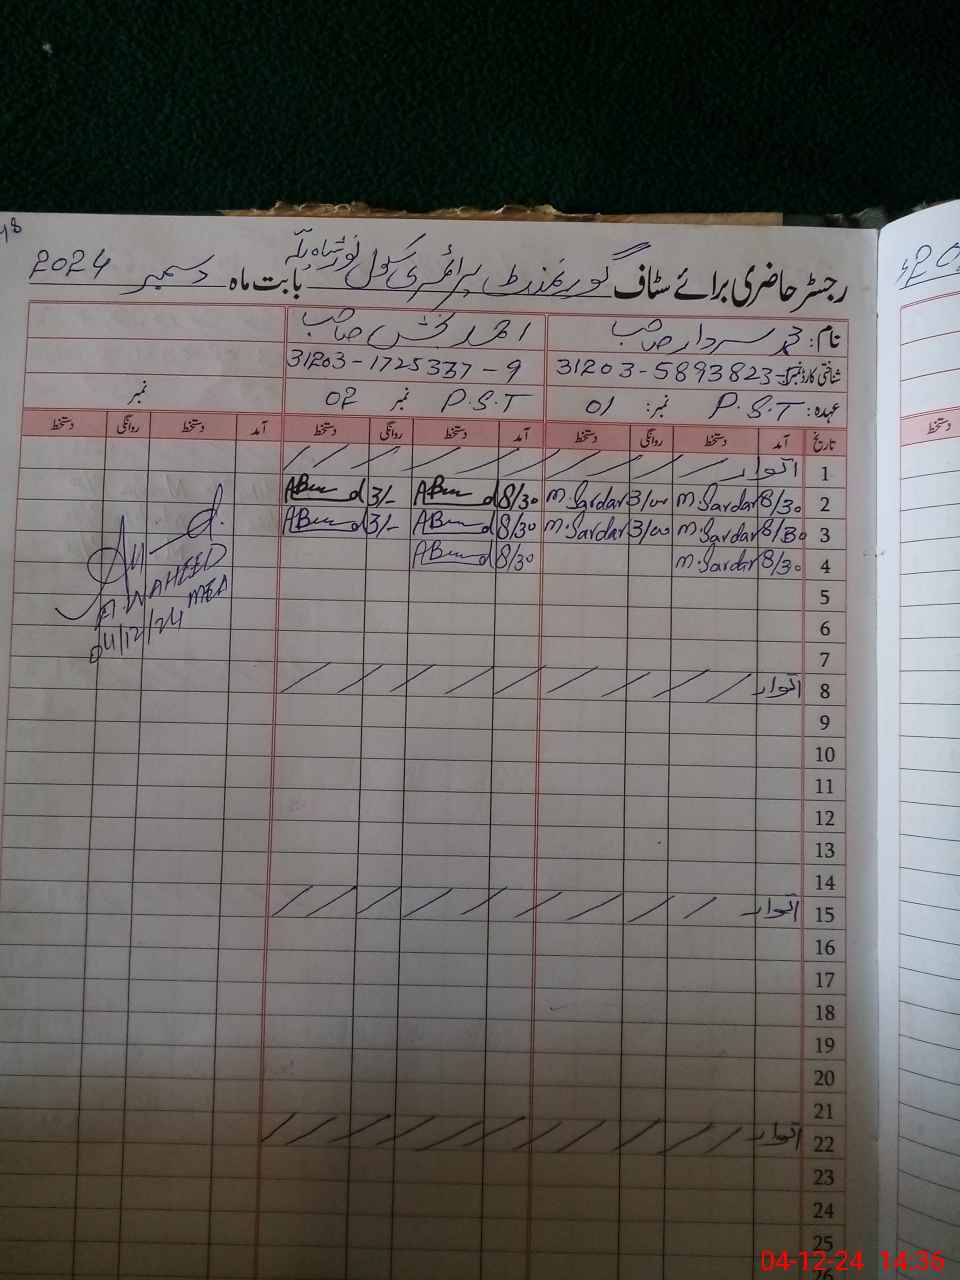 رجسٹر حاضری برائے سٹاف گورنمنٹ پرائمری سکول نور شاہ بابت ماہ دسمبر 2024
نام: سردار صاحب احمد بخش صاحب
شناختی کارڈ نمبر 31203-5893823-5 31203-1725337-9
عہدہ: P.S.T نمبر: 01 P.S.T نمبر 02 نمبر
تاریخ آمد دستخط روانگی دستخط آمد دستخط روانگی دستخط آمد دستخط روانگی دستخط
1 اتوار
2 8/30 M.Sardar 3/00 M.Sardar 8/30 3/-
3 8/30 M.Sardar 3/00 M.Sardar 8/30 3/-
4 8/30 M.Sardar 8/30
A.WAHEED
MEA
04/12/24
5
6
7
8 اتوار
9
10
11
12
13
14
15 اتوار
16
17
18
19
20
21
22 اتوار
23
24
25
26
04-12-24 14:36